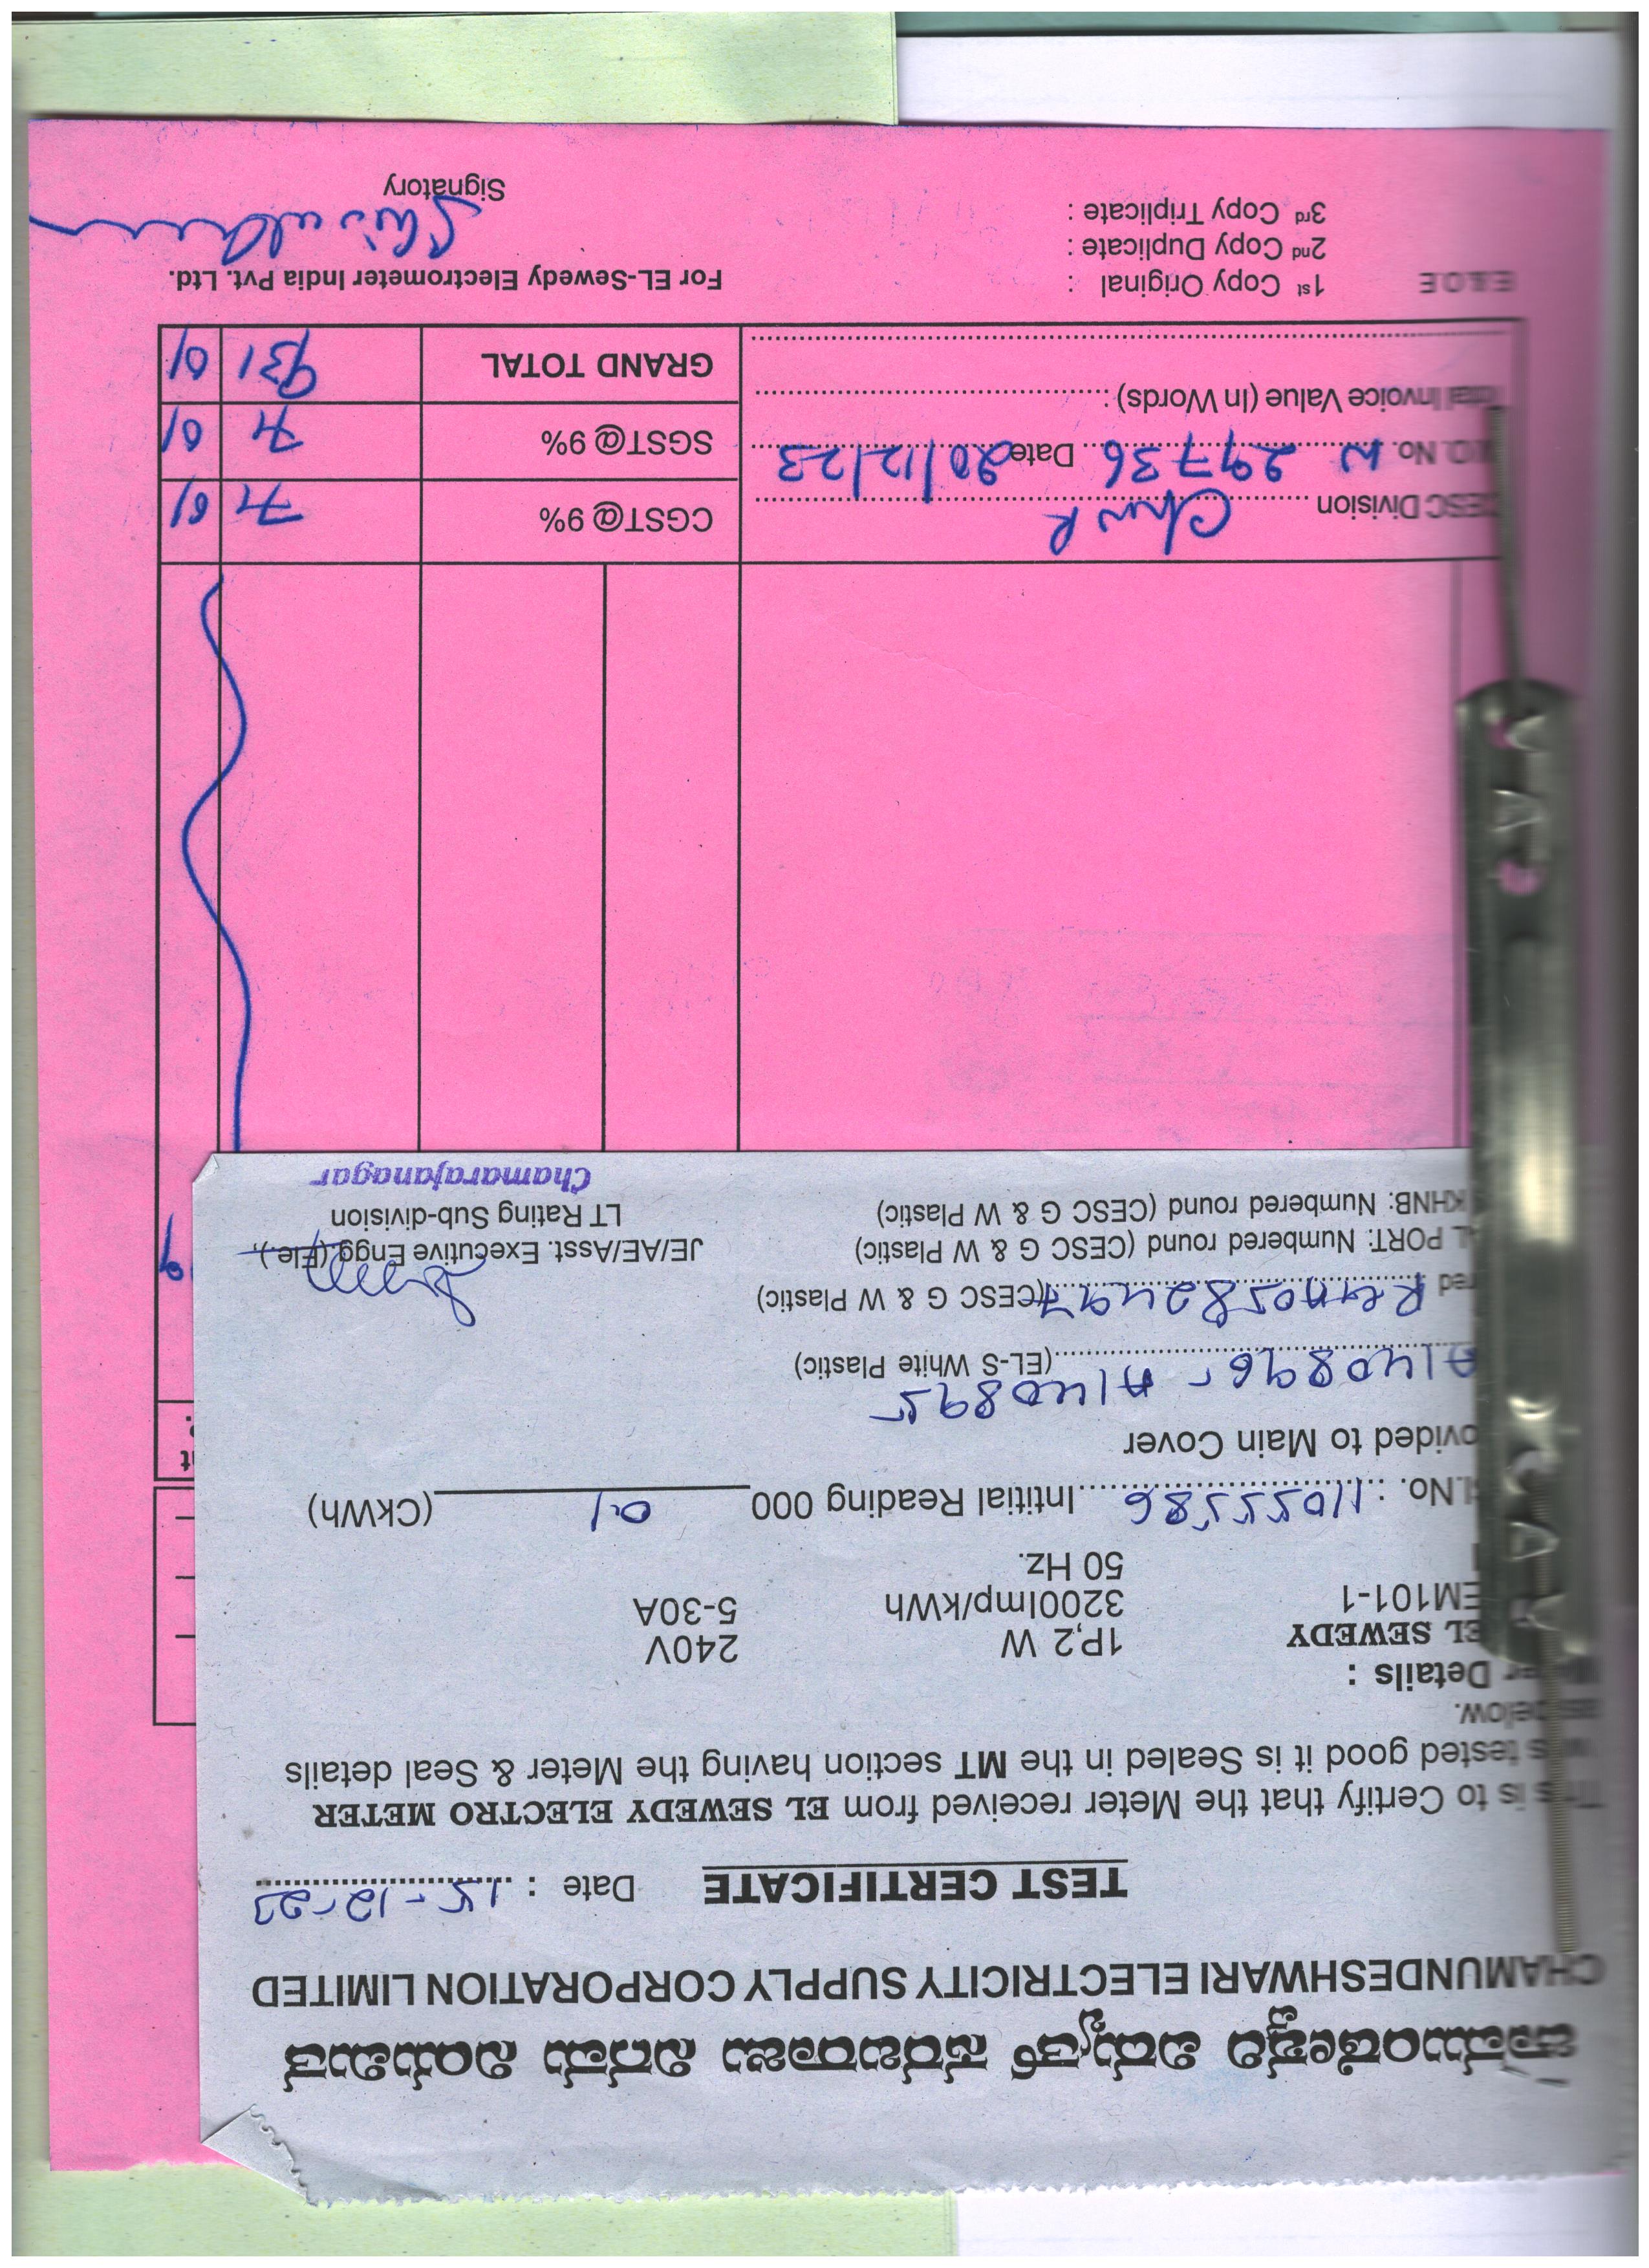 ಚಾಮುಂಡೇಶ್ವರಿ ವಿದ್ಯುತ್ ಸರಬರಾಜು ನಿಗಮ ನಿಯಮಿತ
CHAMUNDESHWARI ELECTRICITY SUPPLY CORPORATION LIMITED
TEST CERTIFICATE Date : 15-12-23
This is to Certify that the Meter received from EL SEWEDY ELECTRO METER
tested good it is Sealed in the MT section having the Meter & Seal details
as below.
Details :
EL SEWEDY 1P,2 W 240V
EM101-1 3200Imp/kWh 5-30A
50 Hz.
Sl.No. : 11055586 Intitial Reading 000 0.1 (CkWh)
ovided to Main Cover
A140896 - A140895 (EL-S White Plastic)
red 0582497 (CESC G & W Plastic)
AL PORT: Numbered round (CESC G & W Plastic)
KHNB: Numbered round (CESC G & W Plastic)
JE/AE/Asst. Executive Engg.(Ele.),
LT Rating Sub-division
Chamarajanagar
CESC Division
CGST@ 9% 71 01
No. W 29736 Date 20/12/23
SGST@ 9% 71 01
Total Invoice Value (In Words) :
GRAND TOTAL 931 01
E & O E
1st Copy Original :
2nd Copy Duplicate :
3rd Copy Triplicate :
For EL-Sewedy Electrometer India Pvt. Ltd.
Signatory